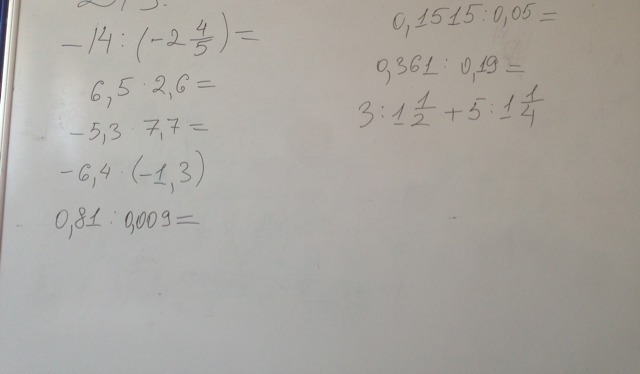 -14 : (-2 4/5) =
6,5 · 2,6 =
-5,3 · 7,7 =
-6,4 · (-1,3)
0,81 : 0,009 =
0,1515 : 0,05 =
0,361 : 0,19 =
3 : 1 1/2 + 5 : 1 1/4